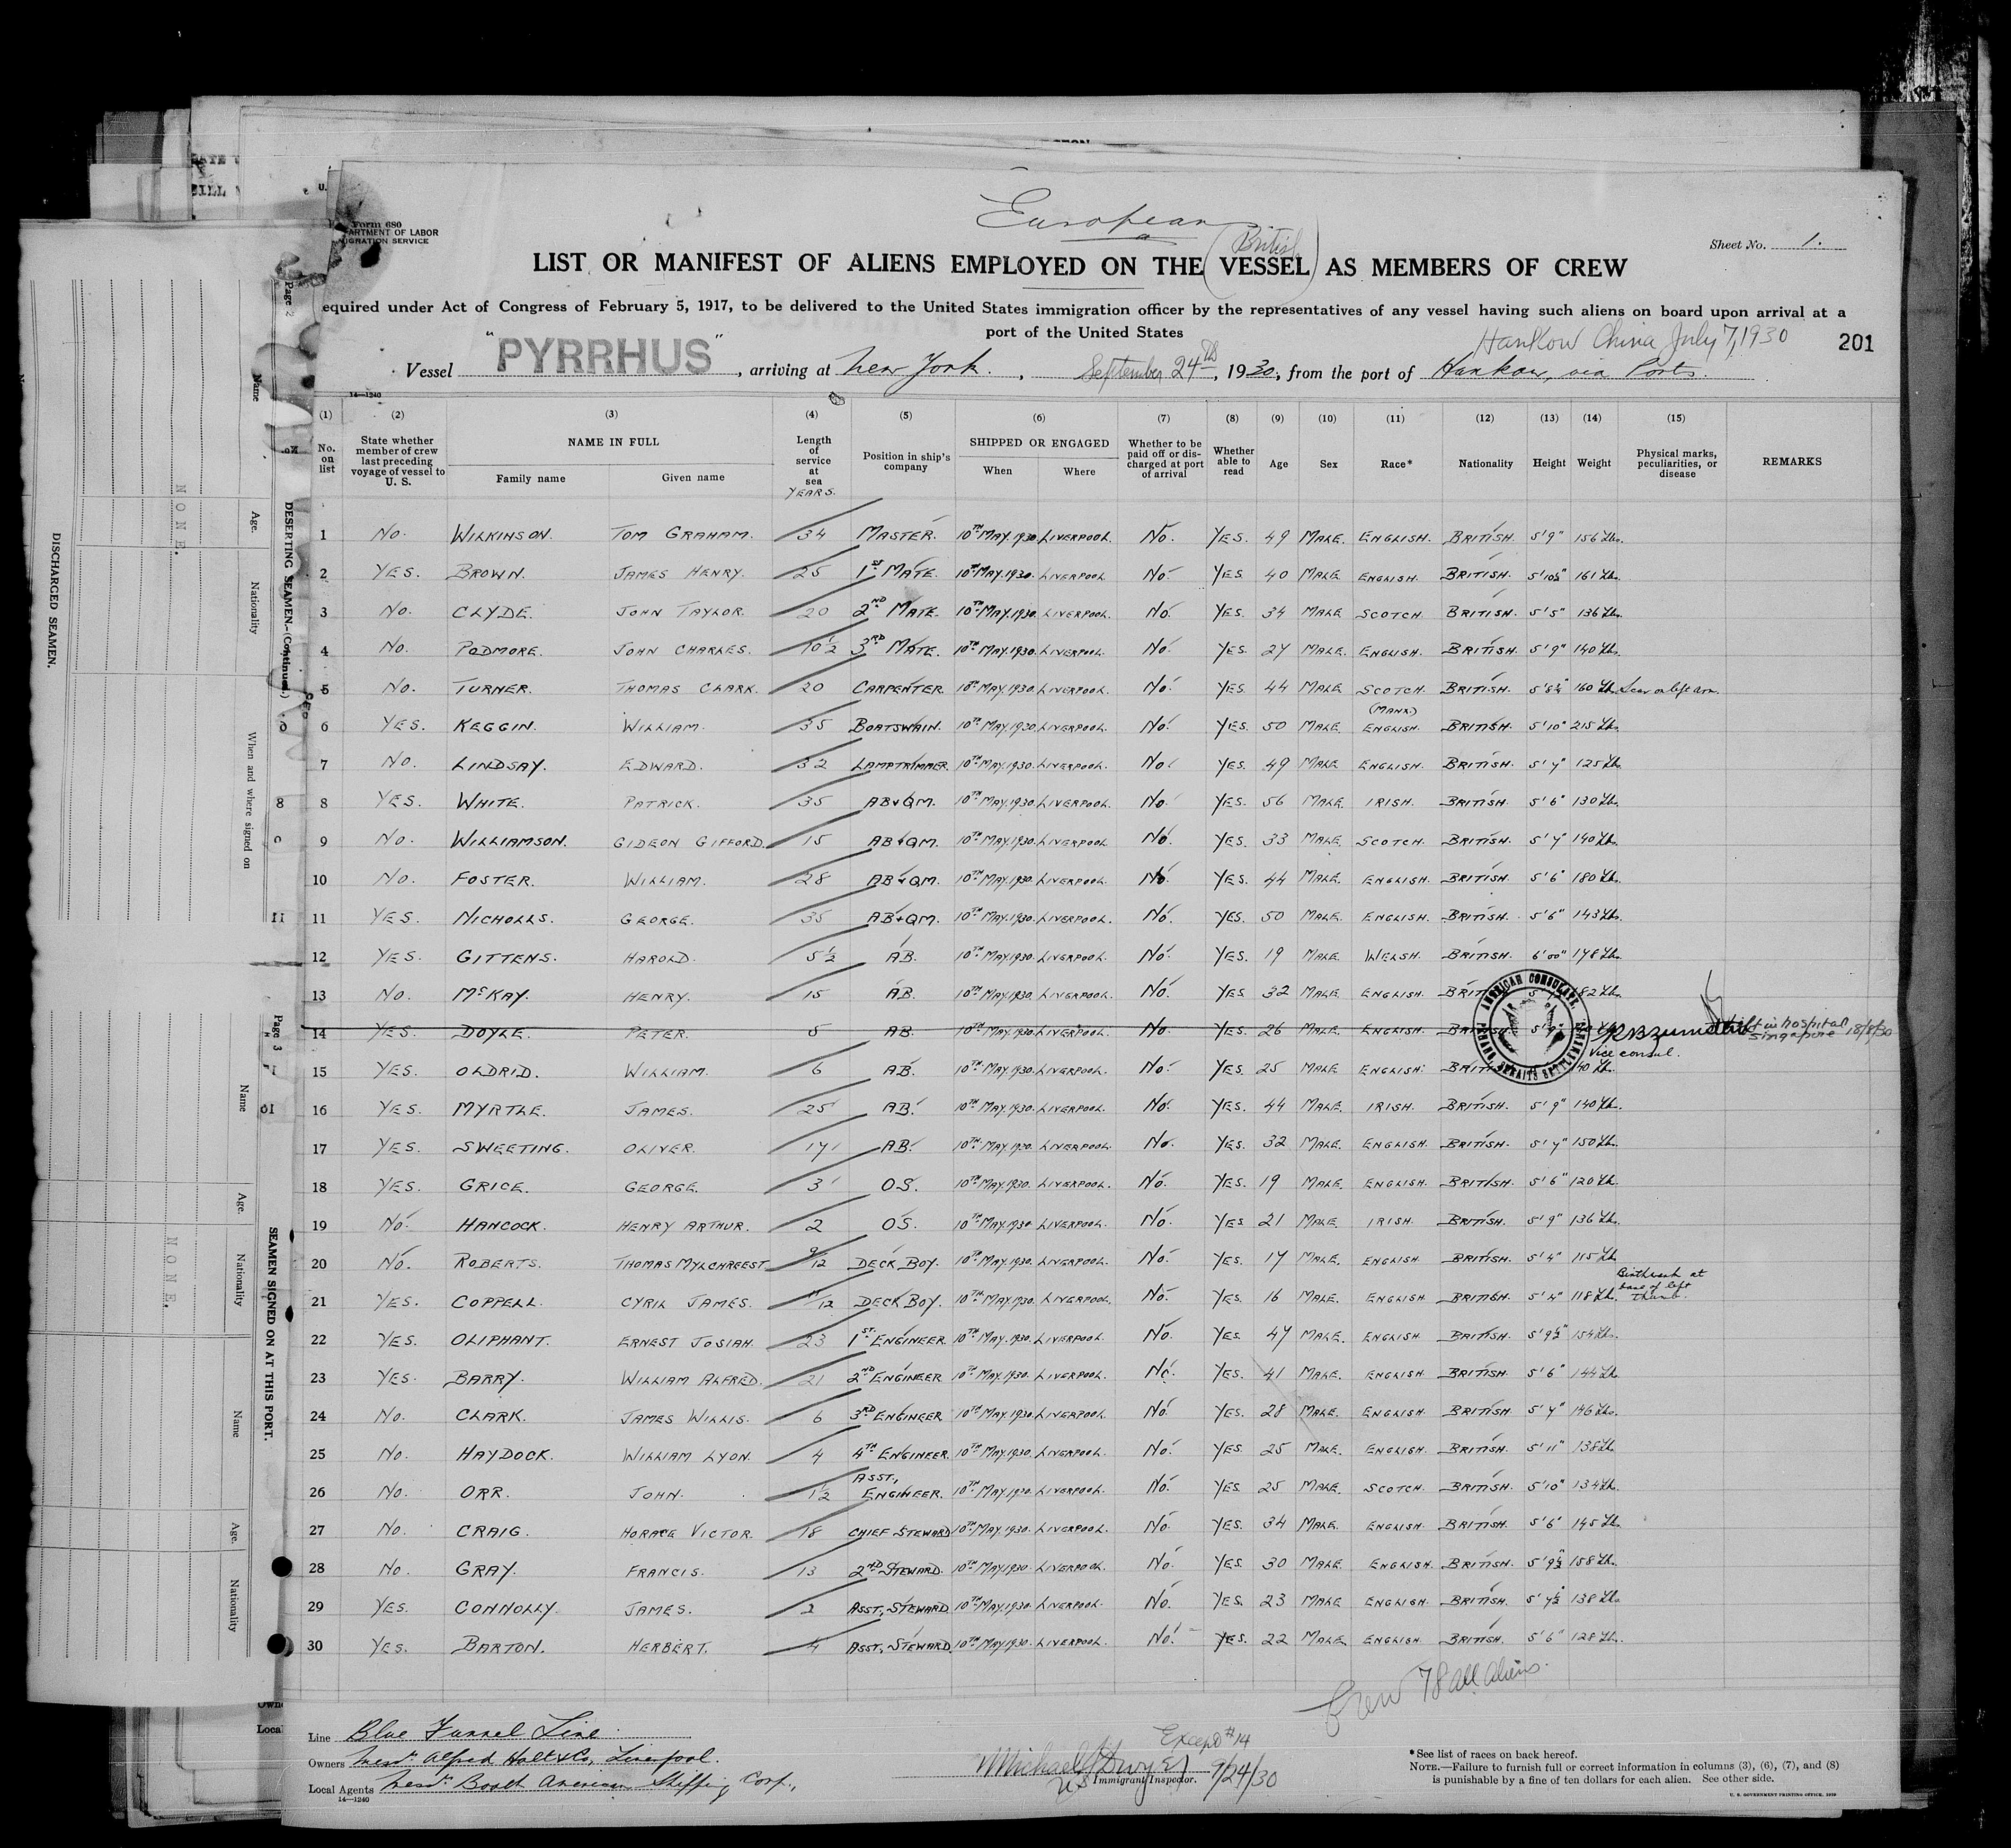 European
(British)
Form 680
ARTMENT OF LABOR
IGRATION SERVICE
Sheet No. 1.
LIST OR MANIFEST OF ALIENS EMPLOYED ON THE VESSEL AS MEMBERS OF CREW
equired under Act of Congress of February 5, 1917, to be delivered to the United States immigration officer by the representatives of any vessel having such aliens on board upon arrival at a
port of the United States
Hankow China July 7, 1930
201
Vessel "PYRRHUS", arriving at New York., September 24th, 1930, from the port of Hankow, via Ports.
14—1240
(1) (2) (3) (4) (5) (6) (7) (8) (9) (10) (11) (12) (13) (14) (15)
No. on list | State whether member of crew last preceding voyage of vessel to U. S. | NAME IN FULL Family name Given name | Length of service at sea YEARS. | Position in ship's company | SHIPPED OR ENGAGED When Where | Whether to be paid off or discharged at port of arrival | Whether able to read | Age | Sex | Race* | Nationality | Height | Weight | Physical marks, peculiarities, or disease | REMARKS
1 No. WILKINSON. TOM GRAHAM. 34 MASTER. 10TH MAY.1930. LIVERPOOL. No. YES. 49 MALE. ENGLISH. BRITISH. 5'9" 156 Lbs.
2 YES. BROWN. JAMES HENRY. 25 1ST MATE. 10TH MAY.1930. LIVERPOOL. No. YES. 40 MALE ENGLISH. BRITISH. 5'10½" 161 Lbs.
3 No. CLYDE. JOHN TAYLOR. 20 2ND MATE. 10TH MAY.1930. LIVERPOOL. No. YES. 34 MALE SCOTCH. BRITISH. 5'5" 136 Lbs.
4 No. PODMORE. JOHN CHARLES. 10½ 3RD MATE. 10TH MAY.1930. LIVERPOOL. No. YES. 27 MALE. ENGLISH. BRITISH. 5'9" 140 Lbs.
5 No. TURNER. THOMAS CLARK. 20 CARPENTER. 10TH MAY.1930. LIVERPOOL. No. YES. 44 MALE SCOTCH. BRITISH. 160 Lbs. Scar on left arm.
6 YES. KEGGIN. WILLIAM. 35 BOATSWAIN. 10TH MAY.1930. LIVERPOOL. No. YES. 50 MALE (MANX.) ENGLISH. BRITISH. 5'10" 215 Lbs.
7 No. LINDSAY. EDWARD. 32 LAMPTRIMMER. 10TH MAY.1930. LIVERPOOL. No. YES. 49 MALE ENGLISH. BRITISH. 5'7" 125 Lbs.
8 YES. WHITE. PATRICK. 35 AB+QM. 10TH MAY.1930. LIVERPOOL. No. YES. 56 MALE IRISH. BRITISH. 5'6" 130 Lbs.
9 No. WILLIAMSON. GIDEON GIFFORD. 15 AB+QM. 10TH MAY.1930. LIVERPOOL. No. YES. 33 MALE. SCOTCH. BRITISH. 5'7" 140 Lbs.
10 No. FOSTER. WILLIAM. 28 AB+QM. 10TH MAY.1930. LIVERPOOL. No. YES. 44 MALE. ENGLISH. BRITISH. 5'6" 180 Lbs.
11 YES. NICHOLLS. GEORGE. 35 AB+QM. 10TH MAY.1930. LIVERPOOL. No. YES. 50 MALE. ENGLISH. BRITISH. 5'6" 143 Lbs.
12 YES. GITTENS. HAROLD. 5½ AB. 10TH MAY.1930. LIVERPOOL. No. YES. 19 MALE. WELSH. BRITISH. 6'00" 178 Lbs.
13 No. McKAY. HENRY. 15 AB. 10TH MAY.1930. LIVERPOOL. No. YES. 32 MALE. ENGLISH. 182 Lbs.
14 YES. DOYLE. PETER. 5 AB. 10TH MAY.1930. LIVERPOOL. No. YES. 26 MALE. ENGLISH. BRITISH. Left in hospital Singapore 18/8/30
AMERICAN CONSULATE PENANG, STRAITS SETTLEMENTS
Vice consul.
15 YES. OLDRID. WILLIAM. 6 AB. 10TH MAY.1930. LIVERPOOL. No. YES. 25 MALE ENGLISH. 140 Lbs.
16 YES. MYRTLE. JAMES. 25 AB. 10TH MAY.1930. LIVERPOOL. No. YES. 44 MALE. IRISH. BRITISH. 5'9" 140 Lbs.
17 YES. SWEETING. OLIVER. 17 AB. 10TH MAY.1930. LIVERPOOL. No. YES. 32 MALE. ENGLISH. BRITISH. 5'7" 150 Lbs.
18 YES. GRICE. GEORGE. 3 OS. 10TH MAY.1930. LIVERPOOL. No. YES. 19 MALE. ENGLISH. BRITISH. 5'6" 120 Lbs.
19 No. HANCOCK. HENRY ARTHUR. 2 OS. 10TH MAY.1930 LIVERPOOL. No. YES 21 MALE. IRISH. BRITISH. 5'9" 136 Lbs.
20 No. ROBERTS. THOMAS MYLCHREEST 9/12 DECK BOY. 10TH MAY.1930. LIVERPOOL. No. YES. 17 MALE. ENGLISH BRITISH. 5'4" 115 Lbs.
21 YES. COPPELL. CYRIL JAMES. 11/12 DECK BOY. 10TH MAY.1930. LIVERPOOL. No. YES. 16 MALE. ENGLISH. BRITISH. 5'4" 118 Lbs. Birthmark at base of left thumb.
22 YES. OLIPHANT. ERNEST JOSIAH. 23 1ST ENGINEER. 10TH MAY.1930. LIVERPOOL. No. YES. 47 MALE. ENGLISH BRITISH. 5'9½" 154 Lbs.
23 YES. BARRY. WILLIAM ALFRED. 21 2ND ENGINEER 10TH MAY.1930. LIVERPOOL. No. YES. 41 MALE. ENGLISH. BRITISH. 5'6" 144 Lbs.
24 No. CLARK. JAMES WILLIS. 6 3RD ENGINEER 10TH MAY.1930. LIVERPOOL. No. YES. 28 MALE. ENGLISH. BRITISH 5'7" 146 Lbs.
25 No. HAYDOCK. WILLIAM LYON. 4 4TH ENGINEER. 10TH MAY.1930. LIVERPOOL. No. YES. 25 MALE. ENGLISH. BRITISH. 5'11" 138 Lbs.
26 No. ORR. JOHN. 1½ ASST., ENGINEER. 10TH MAY.1930. LIVERPOOL. No. YES. 25 MALE. SCOTCH. BRITISH. 5'10" 134 Lbs.
27 No. CRAIG. HORACE VICTOR. 18 CHIEF STEWARD 10TH MAY.1930. LIVERPOOL. No. YES. 34 MALE. ENGLISH. BRITISH. 5'6" 145 Lbs.
28 No. GRAY. FRANCIS. 13 2ND STEWARD. 10TH MAY.1930 LIVERPOOL. No. YES. 30 MALE. ENGLISH. BRITISH. 5'9½" 158 Lbs.
29 YES. CONNOLLY. JAMES. 2 ASST., STEWARD 10TH MAY.1930. LIVERPOOL. No. YES. 23 MALE ENGLISH. BRITISH. 5'7½" 138 Lbs.
30 YES. BARTON. HERBERT. 4 ASST., STEWARD. 10TH MAY.1930. LIVERPOOL. No. YES. 22 MALE. ENGLISH BRITISH. 5'6" 128 Lbs.
Crew 78 all aliens.
Line Blue Funnel Line.
Owners Messrs. Alfred Holt & Co., Liverpool.
Local Agents Messrs. Booth American Shipping Corp.,
14—1240
Except #14
Michael J Dwyer
US Immigrant Inspector. 9/24/30
*See list of races on back hereof.
NOTE.—Failure to furnish full or correct information in columns (3), (6), (7), and (8)
is punishable by a fine of ten dollars for each alien. See other side.
U. S. GOVERNMENT PRINTING OFFICE
DISCHARGED SEAMEN.
NONE.
Name
Age.
Nationality
When and where signed on
Page 2
No.
DESERTING SEAMEN—(Continued.)
8
11
Page 3
10
SEAMEN SIGNED ON AT THIS PORT.
Name
Age.
Nationality
NONE.
Name
Age.
Nationality